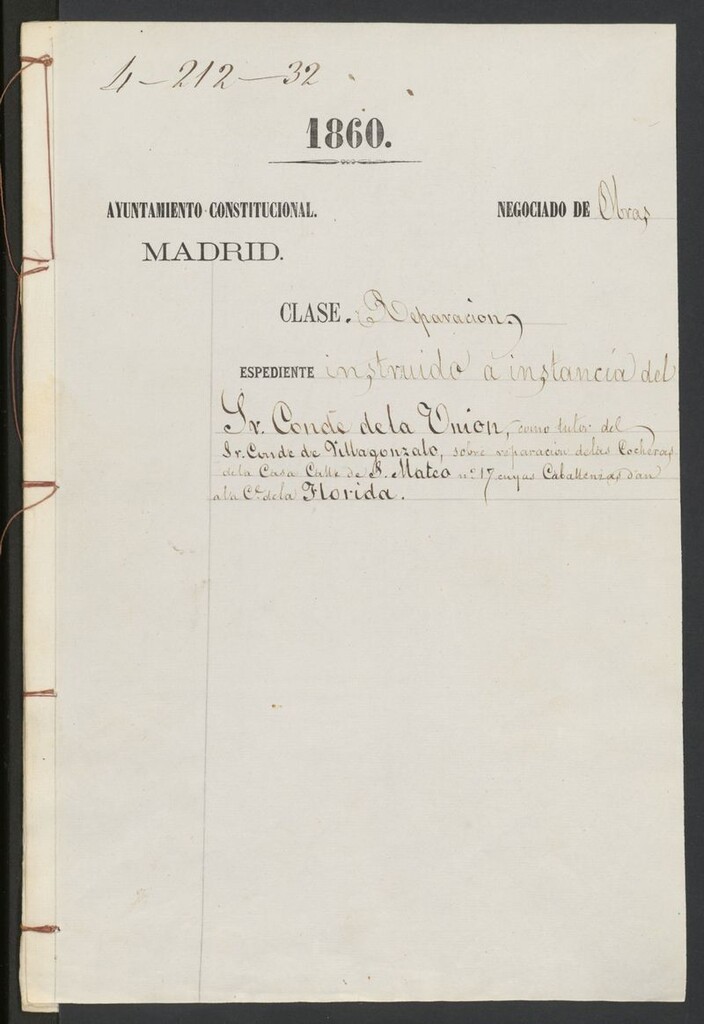 4-212-32
1860.
AYUNTAMIENTO CONSTITUCIONAL.
NEGOCIADO DE Obras
MADRID.
CLASE. Reparacion
ESPEDIENTE instruido à instancia del
Sr. Conde de la Union, como tutor del
Sr. Conde de Villagonzalo, sobre reparacion de las Cocheras
de la Casa Calle de S. Mateo nº 17 cuyas Caballerizas dan
a la Cª de la Florida.